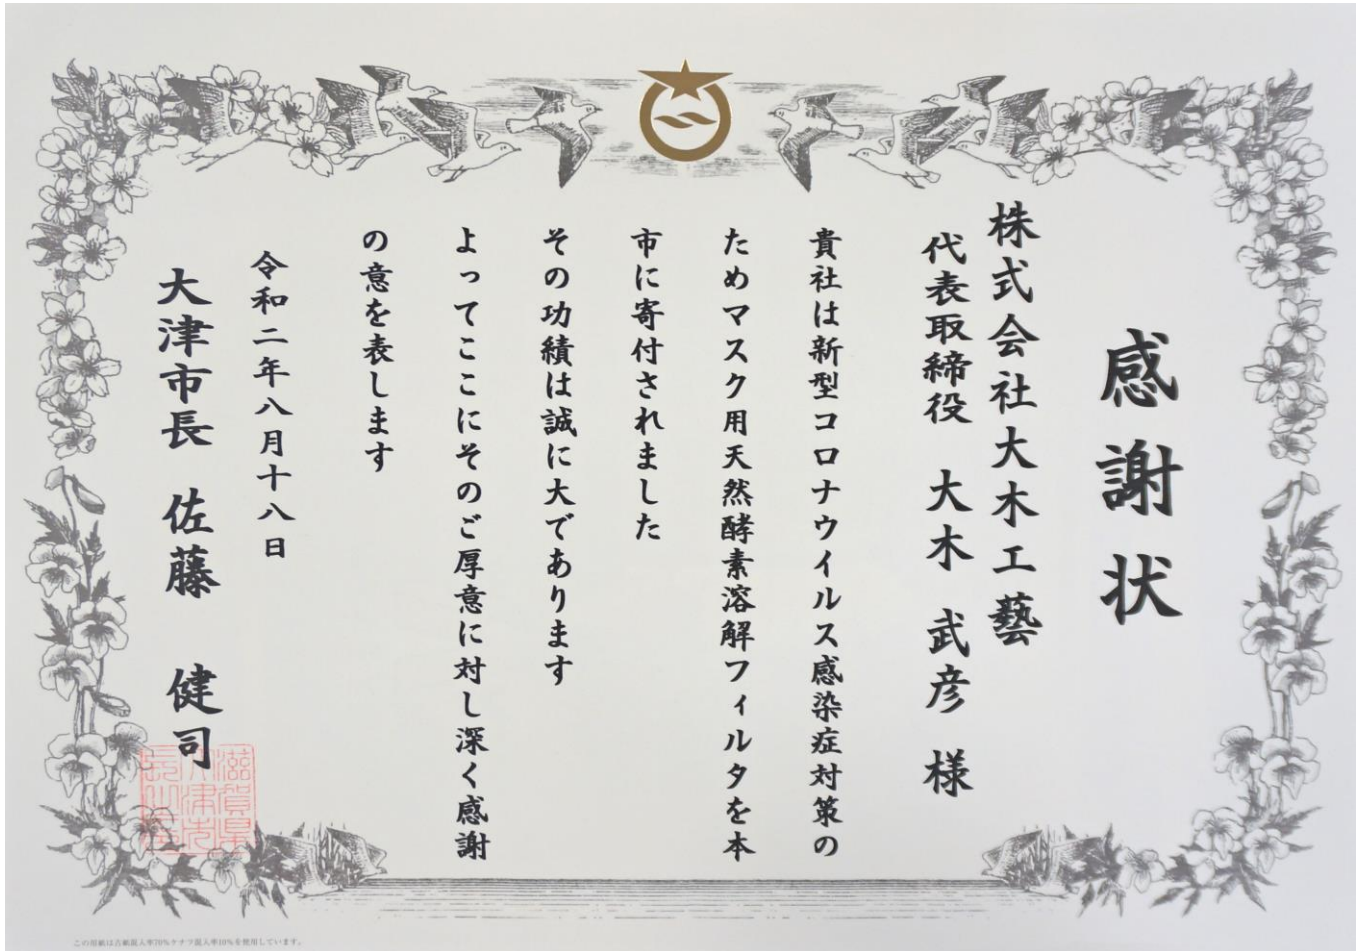 感謝状
株式会社大木工藝
代表取締役　大木　武彦　様
貴社は新型コロナウイルス感染症対策の
ためマスク用天然酵素溶解フィルタを本
市に寄付されました
その功績は誠に大であります
よってここにそのご厚意に対し深く感謝
の意を表します
令和二年八月十八日
大津市長　佐藤　健司
滋賀県
大津市
長之印
この用紙は古紙混入率70%ケナフ混入率10%を使用しています。